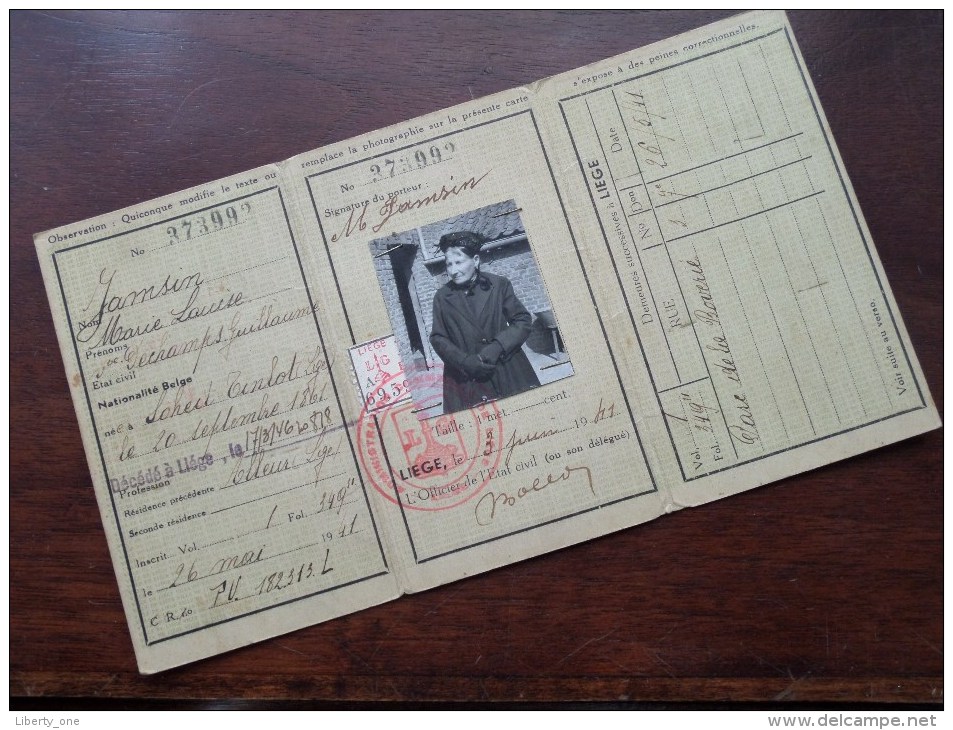 Observation : Quiconque modifie le texte ou remplace la photographie sur la présente carte s'expose à des peines correctionnelles.
No 373992
Nom Jamsin
Prénoms Marie Louise
Etat civil Vve Dechamps, Guillaume
Nationalité Belge
né à Soheit Tinlot (Lge)
le 20 septembre 1861
Décédé à Liége, le 17/3/46
Profession
Résidence précédente Alleur (Lge)
Seconde résidence
Inscrit Vol. 1 Fol. 349"
le 26 mai 1941
C R. No P.V. 182313. L
No 373992
Signature du porteur :
M Jamsin
LIEGE
Taille : 1 met. cent.
LIEGE, le 5 juin 1941
L'Officier de l'Etat civil (ou son délégué)
Demeures successives à LIEGE
Vol. Fol. RUE No Don Date
1 349" Parc de la Boverie 26/5/41
Voir suite au verso.
Liberty_one
http://www.delcampe.net